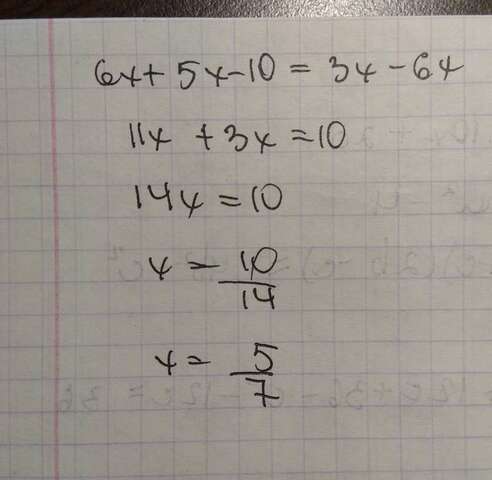 6x + 5x - 10 = 3x - 6x
11x + 3x = 10
14x = 10
x = 10/14
x = 5/7